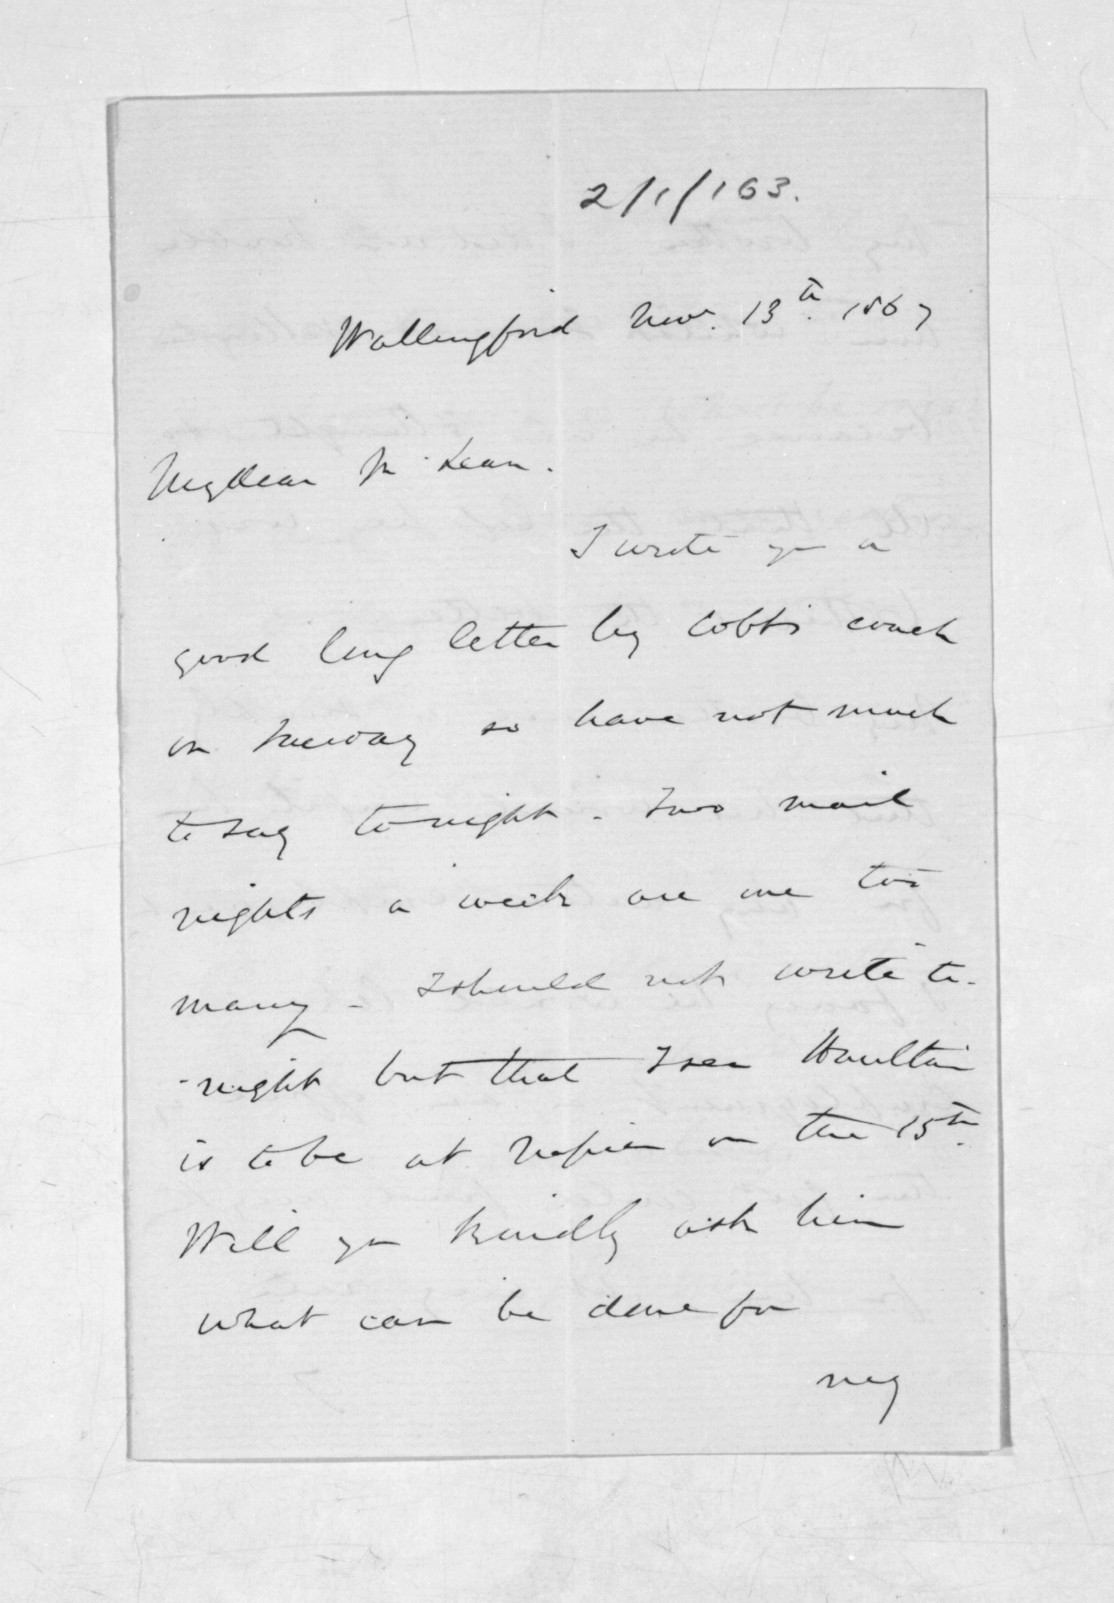 2/1/163.
Wallingford Nov. 13th. 1867
My dear McLean.
I wrote you a
good long letter by Cobb's coach
on Tuesday so have not much
to say tonight - Two mail
nights a week are one too
many - I should not write to-
-night but that I see Haultain
is to be at Napier on the 15th.
Will you kindly ask him
what can be done for
my